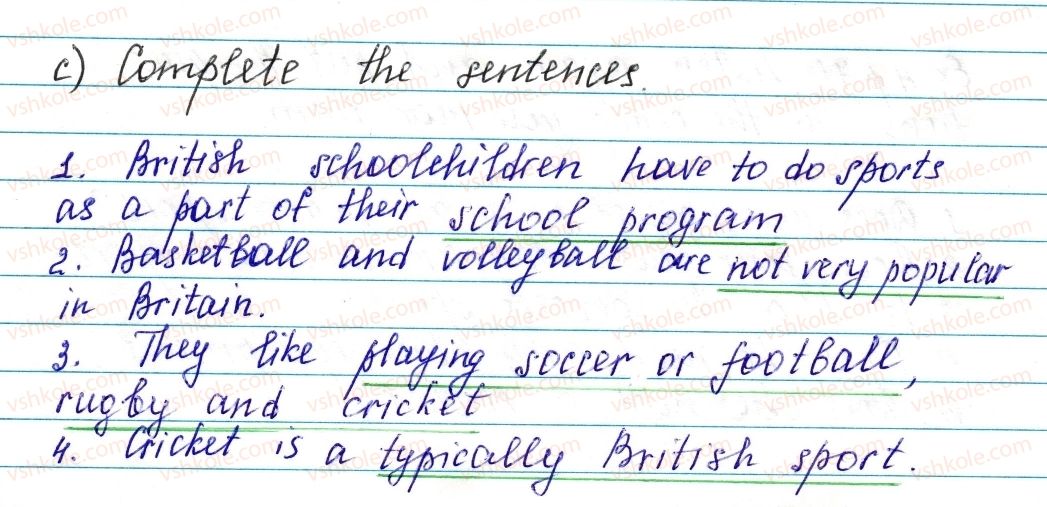 c) Complete the sentences.
1. British schoolchildren have to do sports
as a part of their school program
2. Basketball and volleyball are not very popular
in Britain.
3. They like playing soccer or football,
rugby and cricket
4. Cricket is a typically British sport.